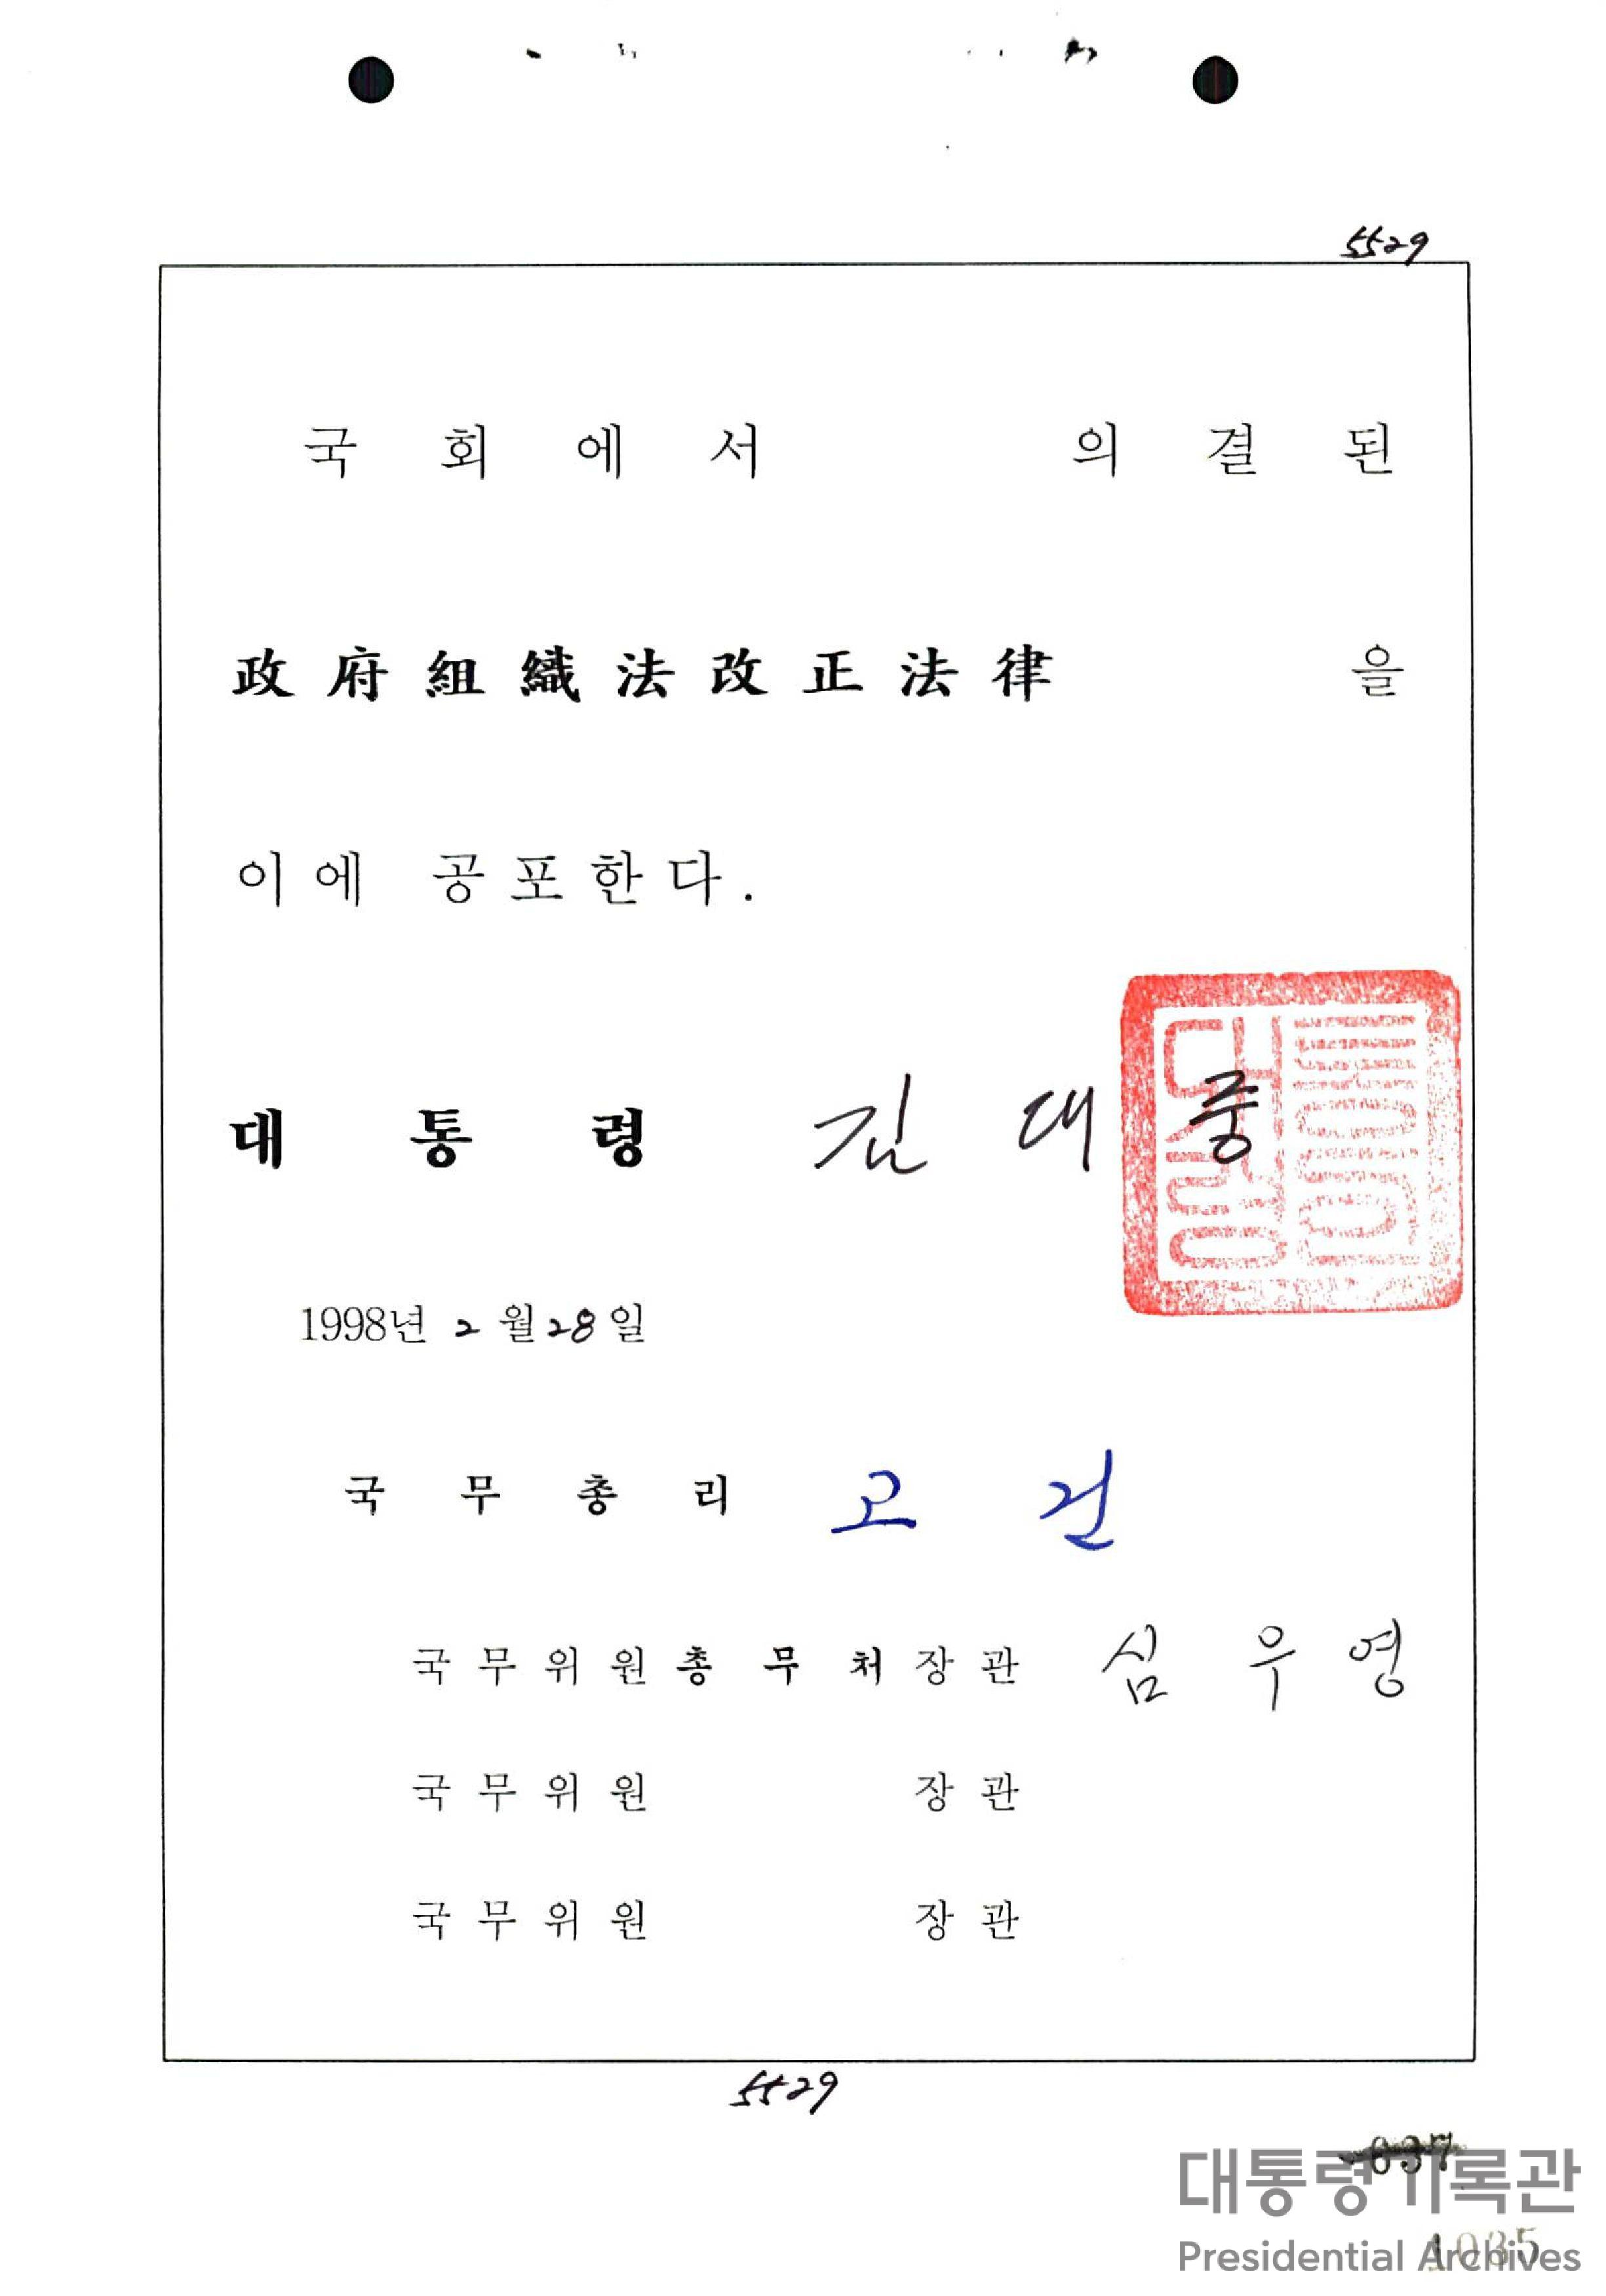 5529
국 회 에 서 의 결 된
政府組織法改正法律 을
이에 공포한다.
대 통 령 김 대 중
1998년 2월 28일
국 무 총 리 고 건
국무위원 총무처장관 심우영
국무위원 장관
국무위원 장관
5529
637
대통령기록관
1035
Presidential Archives